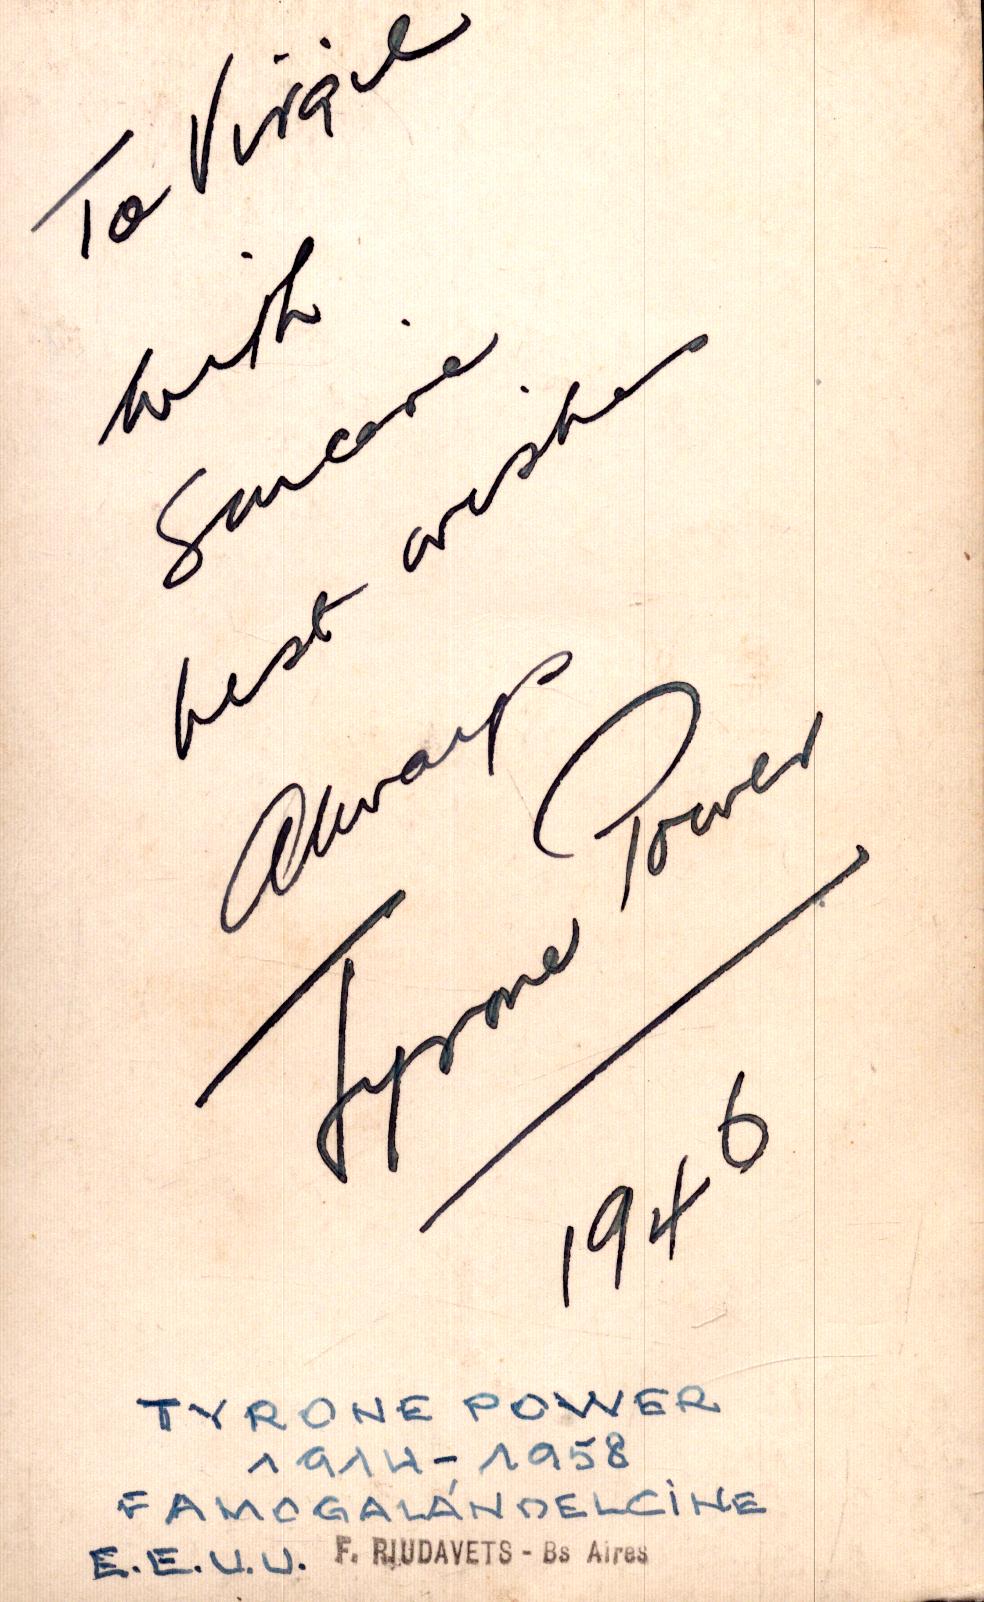 To Virgil
with
Sincere
best wishes
Always
Tyrone Power
1946
TYRONE POWER
1914-1958
FAMOGALÁNDELCINE
E.E.U.U. F. RIUDAVETS - Bs Aires